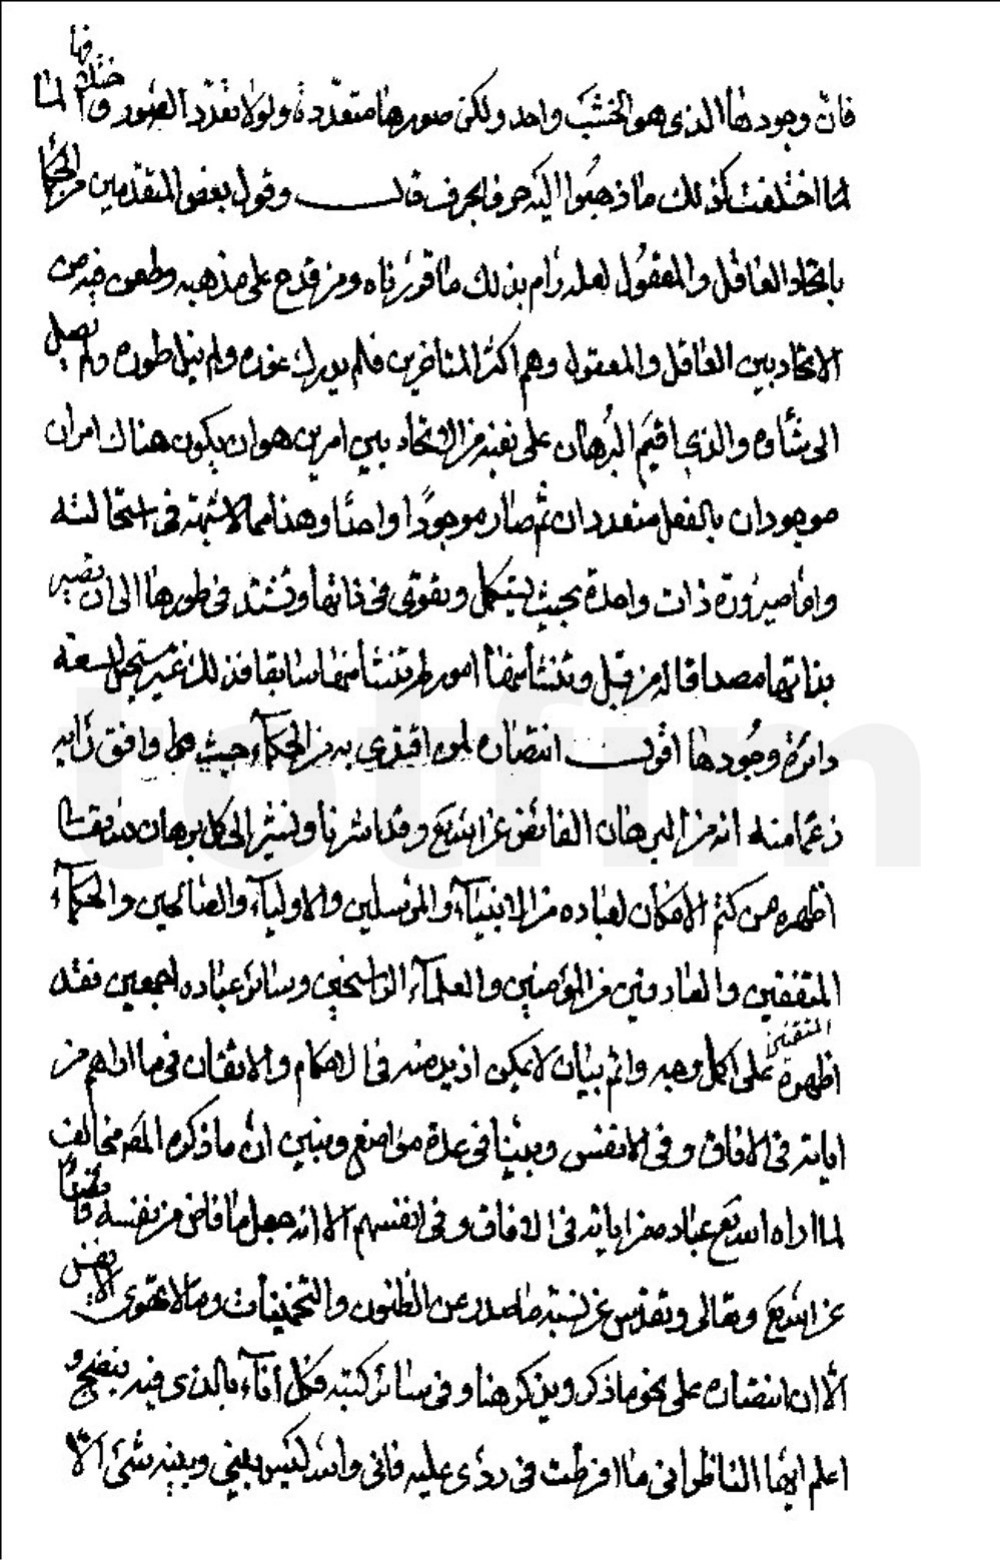 فان وجودها الذي هو الخشب واحد ولكن صورها متعددة ولولا تعدد الصور واختلافها لما
لما اختلفت كذلك ما ذهبوا اليه حرفا بحرف قال وقول بعض المتقدمين من الحكما
باتحاد العاقل والمعقول لعله رام بذلك ما قررناه ومن قدح على مذهبه وطعن فيه من
الاتحاد بين العاقل والمعقول وهم اكثر المتاخرين فلم يدرك غوره ولم ينل طوره ولم يصل
الى شأوه والذي اقيم البرهان على نفيه من الاتحاد بين امرين هو ان يكون هناك امران
موجودان بالفعل متعددان ثم صارا موجودًا واحدًا وهذا مما لا شبهة في استحالته
واما صيرورة ذات واحدة بحيث يستكمل ويقوى في ذاتها وتشتد في طورها الى ان تصير
بذاتها مصداقا لامر من قبل وتنشأ منها امور لم تنشأ منها سابقا فذلك غير مستحيل لسعة
دائرة وجودها اقول انتصاره لمن اقتدى به من الحكمآء حيث وافق رايه
زعما منه انه من البرهان الفائض عن الله تع وقد اشرنا ونشير الى كل برهان
اظهره من كتم الامكان لعباده من الانبيآء والمرسلين والاوليآء والصالحين والحكمآء
المتقنين والعارفين من المؤمنين والعلمآء الراسخين وسائر عباده اجمعين فقد
المتقين
اظهره على اكمل وجه واتم بيان لا يمكن ازيد منه في الاحكام والاتقان في ما اراهم من
اياته في الافاق وفي الانفس وبيّنا في عدة مواضع ونبين ان ما ذكره المص مخالف
لما اراه الله تع عباده من اياته في الافاق وفي انفسهم الا انه جعل ما فاض من نفسه فائضا
عن الله تع وتعالى وتقدس عن نسبة ما صدر عن الظنون والتخمينات وما لا تهوى الانفس
الا ان انتصاره على نحو ما ذكر ويذكر هنا وفي سائر كتبه فكل انآء بالذي فيه ينضح و
اعلم ايها الناظر اني ما افرطت في ردّي عليه فاني والله ليس بيني وبينه شيء الّا